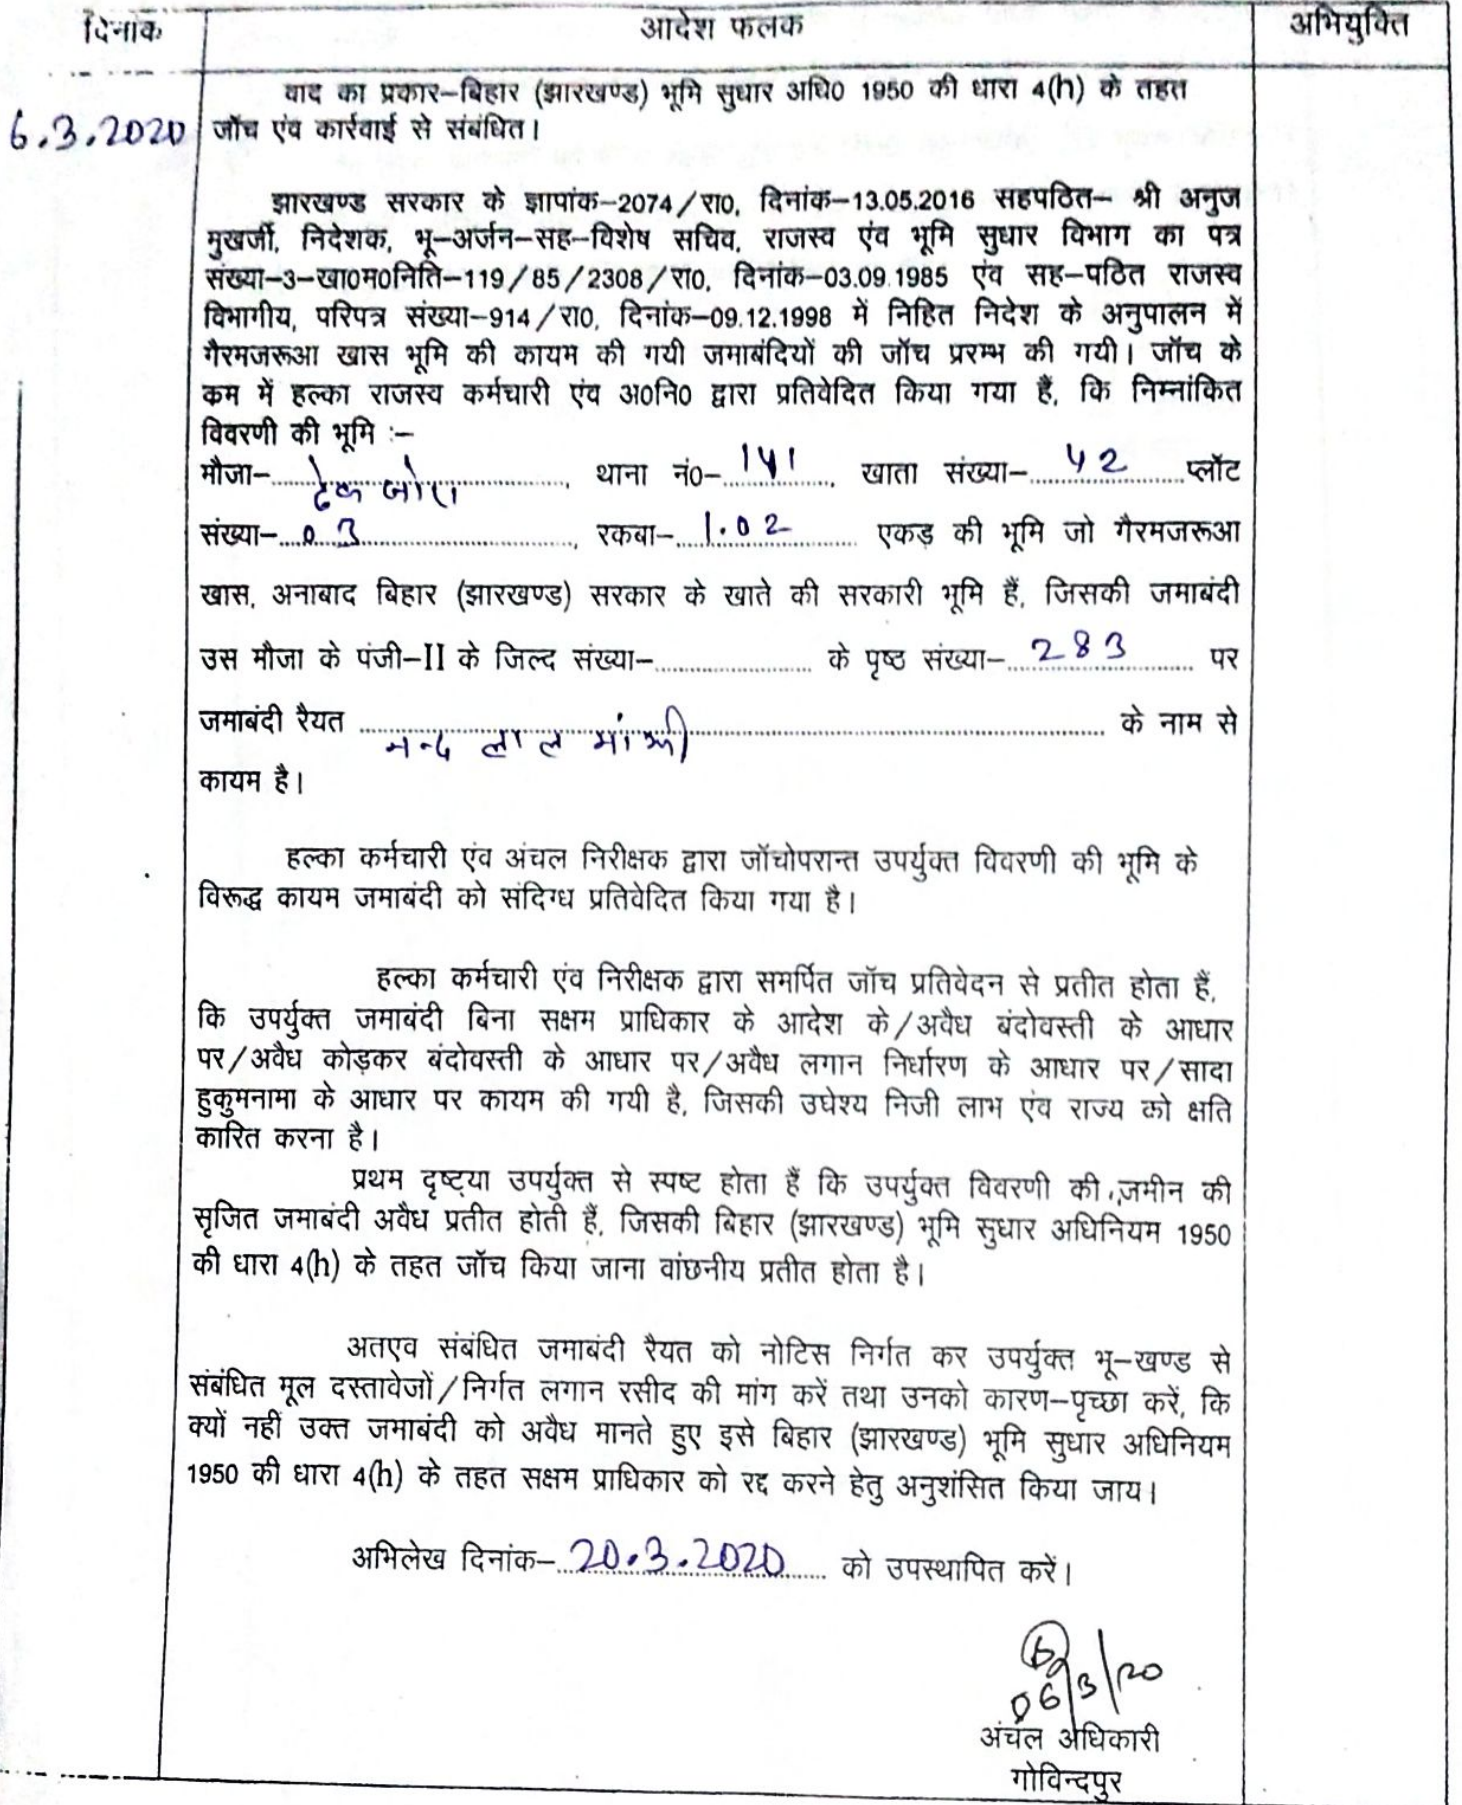 दिनांक आदेश फलक अभियुक्ति
वाद का प्रकार–बिहार (झारखण्ड) भूमि सुधार अधि0 1950 की धारा 4(h) के तहत
6.3.2020 जॉच एंव कार्रवाई से संबंधित।
झारखण्ड सरकार के ज्ञापांक–2074/रा0, दिनांक–13.05.2016 सहपठित– श्री अनुज
मुखर्जी, निदेशक, भू–अर्जन–सह–विशेष सचिव, राजस्व एंव भूमि सुधार विभाग का पत्र
संख्या–3–खा0म0निति–119/85/2308/रा0, दिनांक–03.09.1985 एंव सह–पठित राजस्व
विभागीय, परिपत्र संख्या–914/रा0, दिनांक–09.12.1998 में निहित निदेश के अनुपालन में
गैरमजरूआ खास भूमि की कायम की गयी जमाबंदियों की जॉच प्ररम्भ की गयी। जॉच के
कम में हल्का राजस्व कर्मचारी एंव अ0नि0 द्वारा प्रतिवेदित किया गया हैं, कि निम्नांकित
विवरणी की भूमि :–
मौजा–, थाना नं0–141, खाता संख्या–42 प्लॉट
संख्या–03, रकबा–1.02 एकड़ की भूमि जो गैरमजरूआ
खास, अनाबाद बिहार (झारखण्ड) सरकार के खाते की सरकारी भूमि हैं, जिसकी जमाबंदी
उस मौजा के पंजी–II के जिल्द संख्या– के पृष्ठ संख्या–283 पर
जमाबंदी रैयत नन्द लाल मांझी के नाम से
कायम है।
हल्का कर्मचारी एंव अंचल निरीक्षक द्वारा जॉचोपरान्त उपर्युक्त विवरणी की भूमि के
विरूद्ध कायम जमाबंदी को संदिग्ध प्रतिवेदित किया गया है।
हल्का कर्मचारी एंव निरीक्षक द्वारा समर्पित जॉच प्रतिवेदन से प्रतीत होता हैं,
कि उपर्युक्त जमाबंदी बिना सक्षम प्राधिकार के आदेश के/अवैध बंदोवस्ती के आधार
पर/अवैध कोड़कर बंदोवस्ती के आधार पर/अवैध लगान निर्धारण के आधार पर/सादा
हुकुमनामा के आधार पर कायम की गयी है, जिसकी उघेश्य निजी लाभ एंव राज्य को क्षति
कारित करना है।
प्रथम दृष्टया उपर्युक्त से स्पष्ट होता हैं कि उपर्युक्त विवरणी की जमीन की
सृजित जमाबंदी अवैध प्रतीत होती हैं, जिसकी बिहार (झारखण्ड) भूमि सुधार अधिनियम 1950
की धारा 4(h) के तहत जॉच किया जाना वांछनीय प्रतीत होता है।
अतएव संबंधित जमाबंदी रैयत को नोटिस निर्गत कर उपर्युक्त भू–खण्ड से
संबंधित मूल दस्तावेजों/निर्गत लगान रसीद की मांग करें तथा उनको कारण–पृच्छा करें, कि
क्यों नहीं उक्त जमाबंदी को अवैध मानते हुए इसे बिहार (झारखण्ड) भूमि सुधार अधिनियम
1950 की धारा 4(h) के तहत सक्षम प्राधिकार को रद्द करने हेतु अनुशंसित किया जाय।
अभिलेख दिनांक–20.3.2020 को उपस्थापित करें।
06/3/20
अंचल अधिकारी
गोविन्दपुर